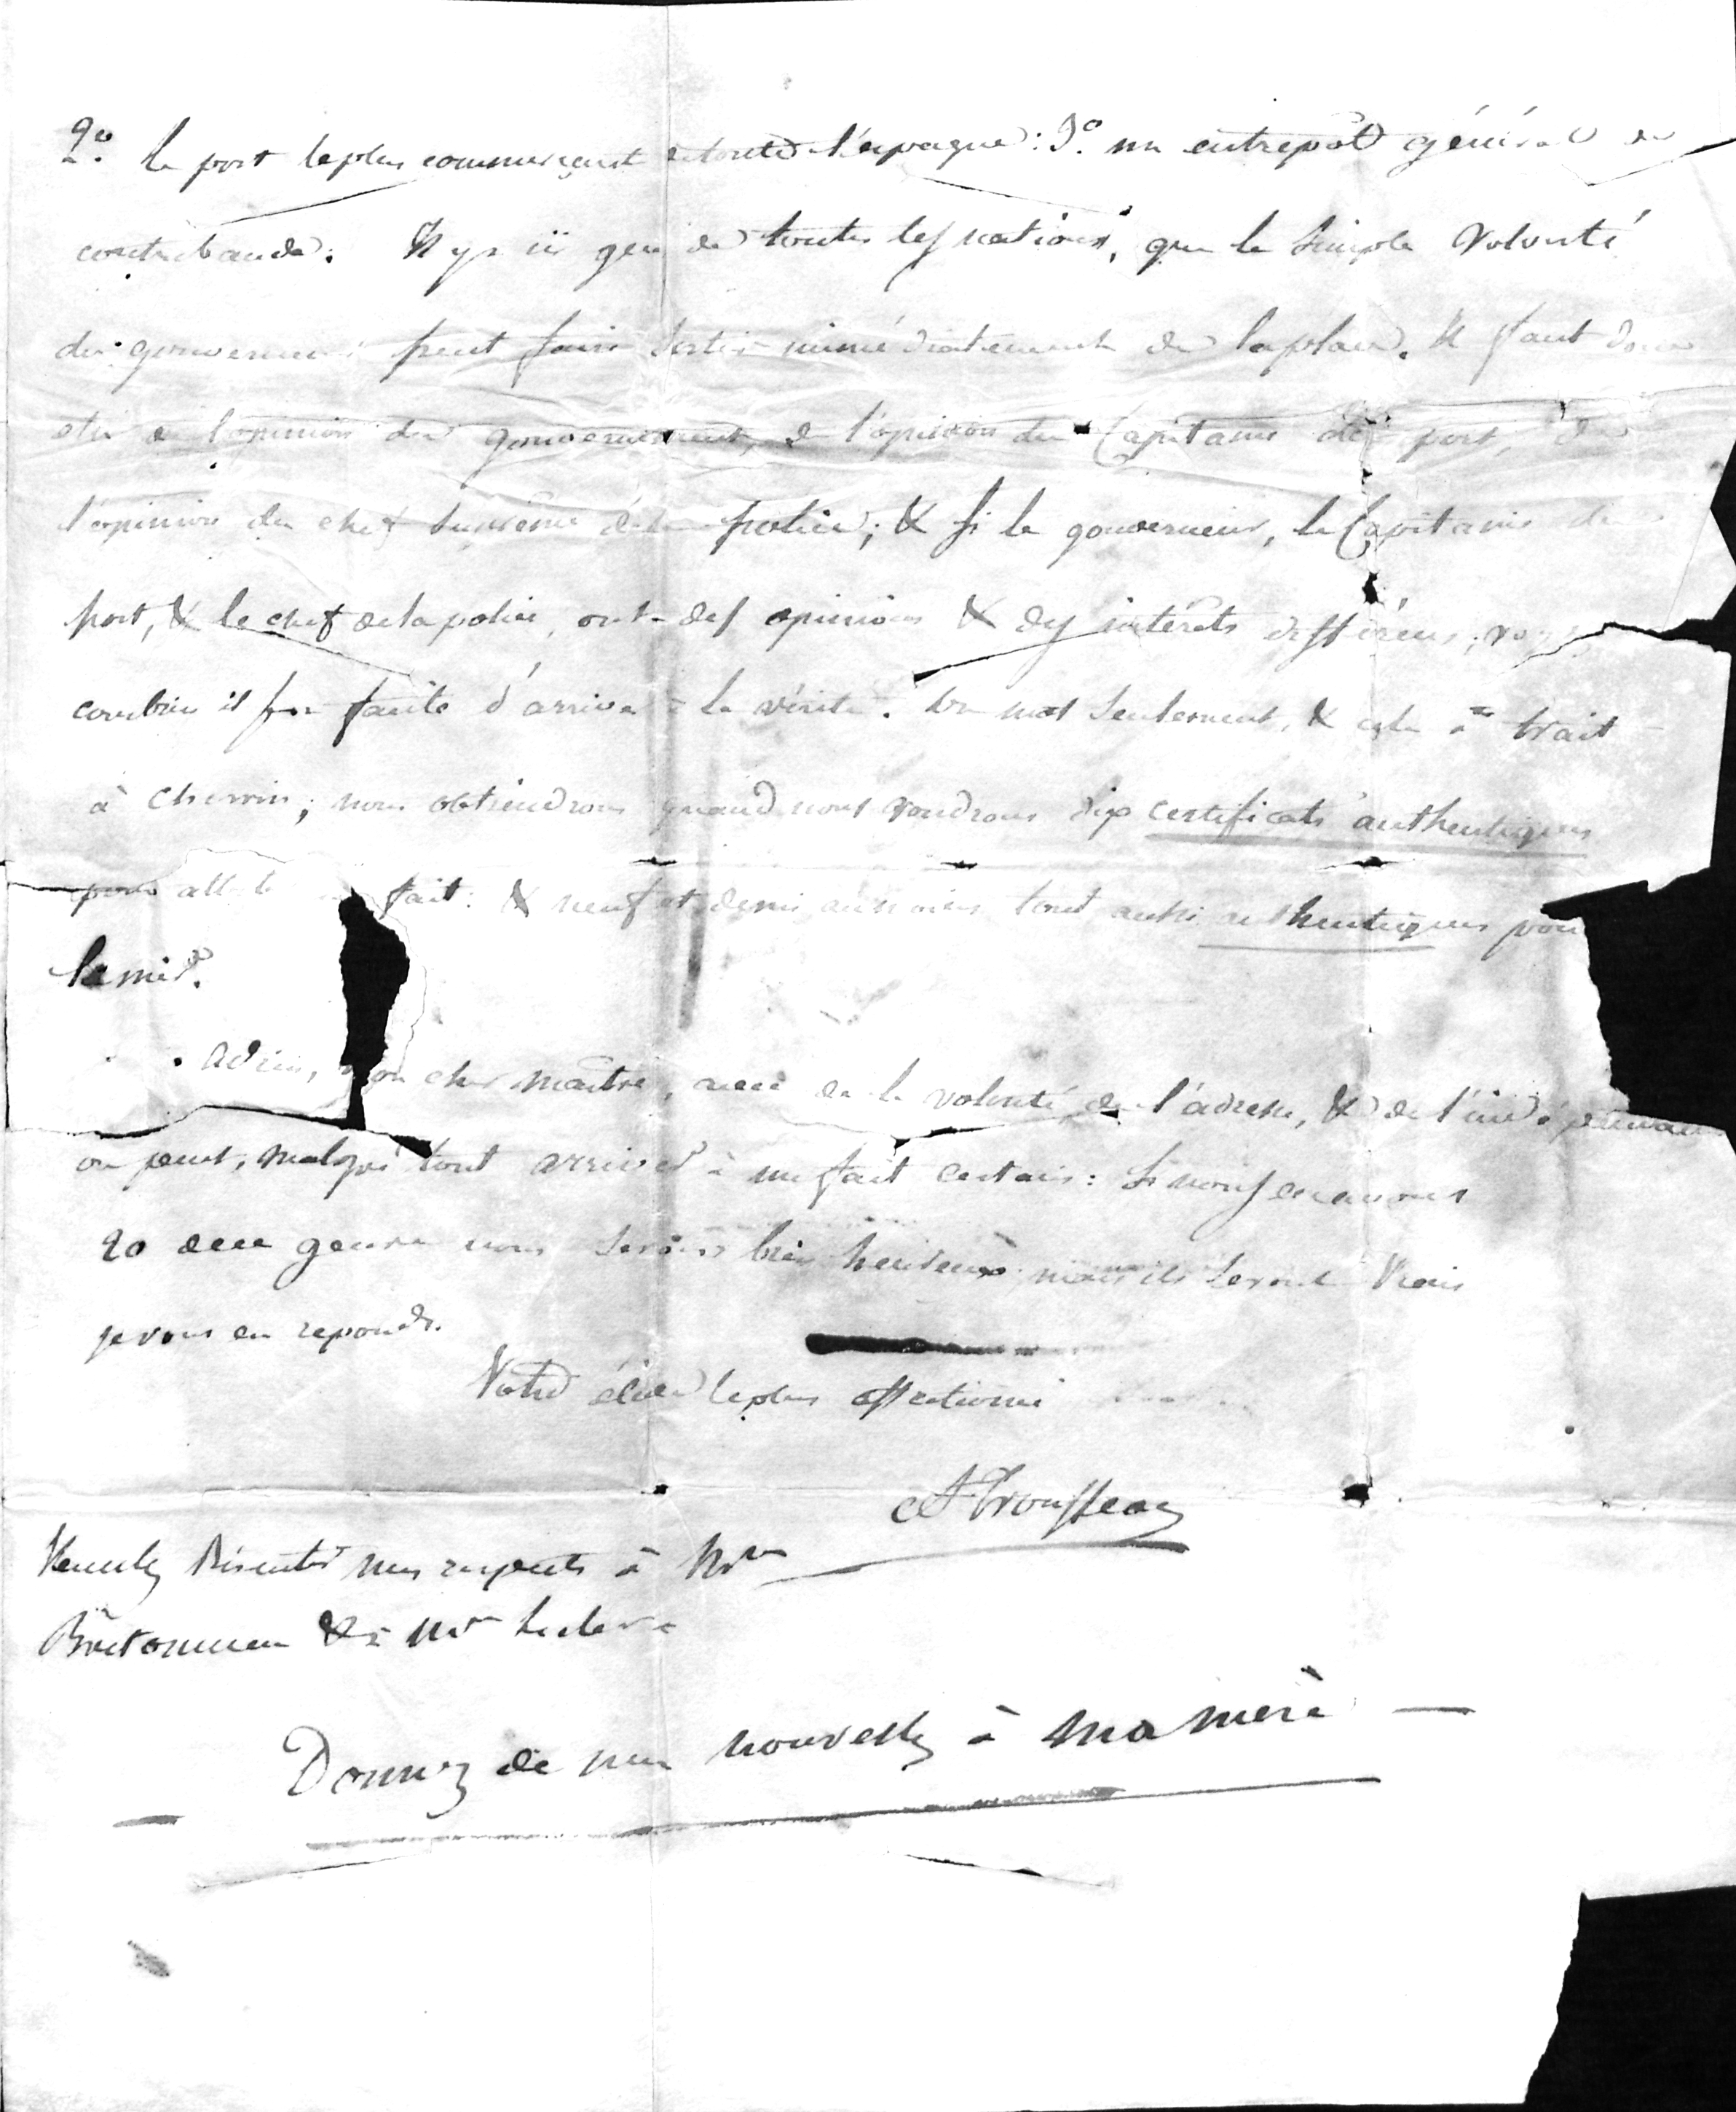 2.º le port le plus commerçant de toute l'espagne : 3.º un entrepôt général de
contrebande. Il y a ici gens de toutes les nations, que la simple volonté
du gouverneur peut faire sortir immédiatement de la place. Il faut donc
être de l'opinion du gouvernement, de l'opinion du Capitaine de port, de
l'opinion du chef suprême de la police ; & si le gouverneur, le Capitaine de
port, & le chef de la police, ont des opinions & des intérêts différens, voyez
combien il sera facile d'arriver à la vérité. Un mot seulement, & cela a trait
à Chervin ; nous obtiendrons quand nous voudrons dix certificats authentiques
pour fait : & neuf et demi au moins tout aussi authentiques pour
le nier.
adieu, mon cher maître, avec de la volonté de l'adresse, & de l'indépendance
on peut, malgré tout arriver à un fait certain : Si nous en avons
20 de ce genre nous serons bien heureux, mais ils seront vrais
je vous en reponds.
Votre élève le plus affectionné
A Trousseau
Veuillez Présenter mes respects à Mme
Bretonneau & à Mr Leclerc
Donnez de mes nouvelles à ma mère —